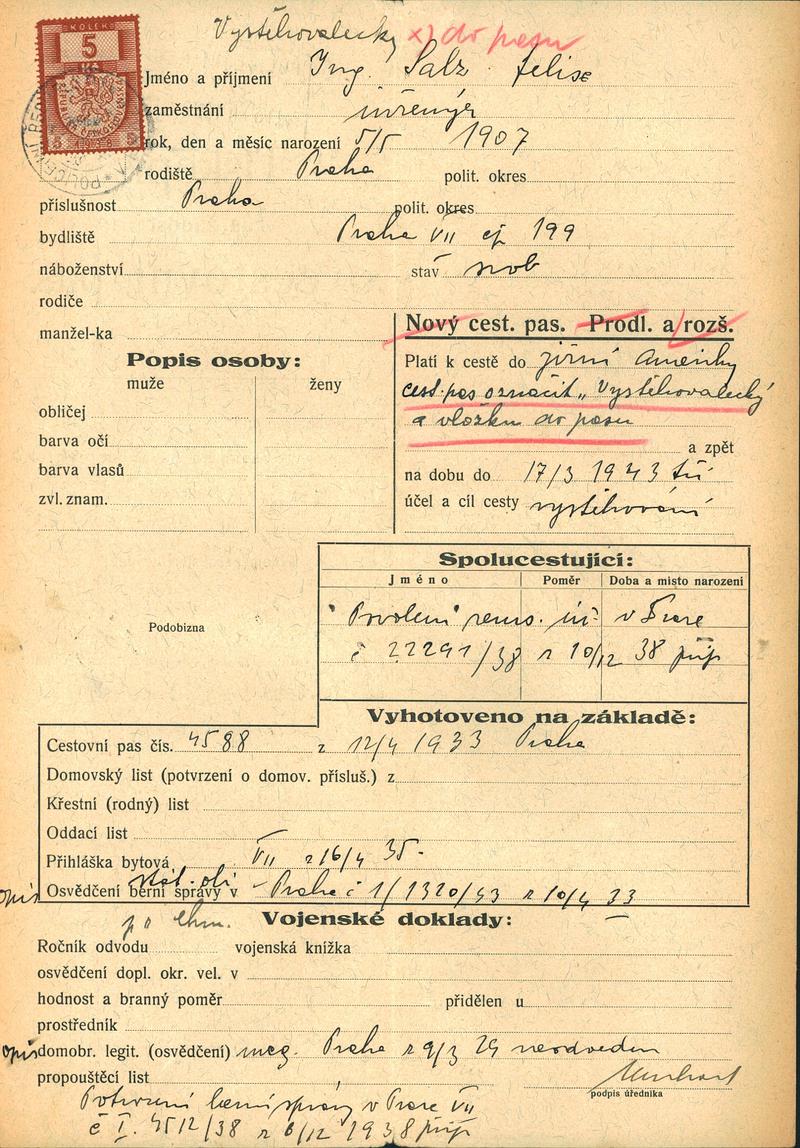 Vystěhovalecký x) do pasu
KOLEK
5
1938
Jméno a příjmení Ing. Salz Felise
zaměstnání inženýr
rok, den a měsíc narození 5/5 1907
rodiště Praha polit. okres
příslušnost Praha polit. okres
bydliště Praha VII čp 199
náboženství stav svob
rodiče
manžel-ka
Nový cest. pas. Prodl. a rozš.
Popis osoby:
muže ženy
obličej
barva očí
barva vlasů
zvl. znam.
Platí k cestě do jižní Ameriky
cest. pas označit „Vystěhovalecký
a vložku do pasu
a zpět
na dobu do 17/3 1943
účel a cíl cesty vystěhování
Spolucestující:
Jméno Poměr Doba a místo narození
Povolení v Praze
č 22291/38 z 10/12 38
Podobizna
Vyhotoveno na základě:
Cestovní pas čís. 4588 z 12/4 1933 Praha
Domovský list (potvrzení o domov. přísluš.) z
Křestní (rodný) list
Oddací list
Přihláška bytová VII z 16/4 35
opis Osvědčení berní správy v stát. ob. Praha č 1/1320/43 z 10/4 33
Vojenské doklady:
Ročník odvodu vojenská knížka
osvědčení dopl. okr. vel. v
hodnost a branný poměr přidělen u
prostředník
opis domobr. legit. (osvědčení) mag. Praha z 9/3 29 neodveden
propouštěcí list
podpis úředníka
Potvrzení berní správy v Praze VII
č I. 4512/38 z 6/12 1938